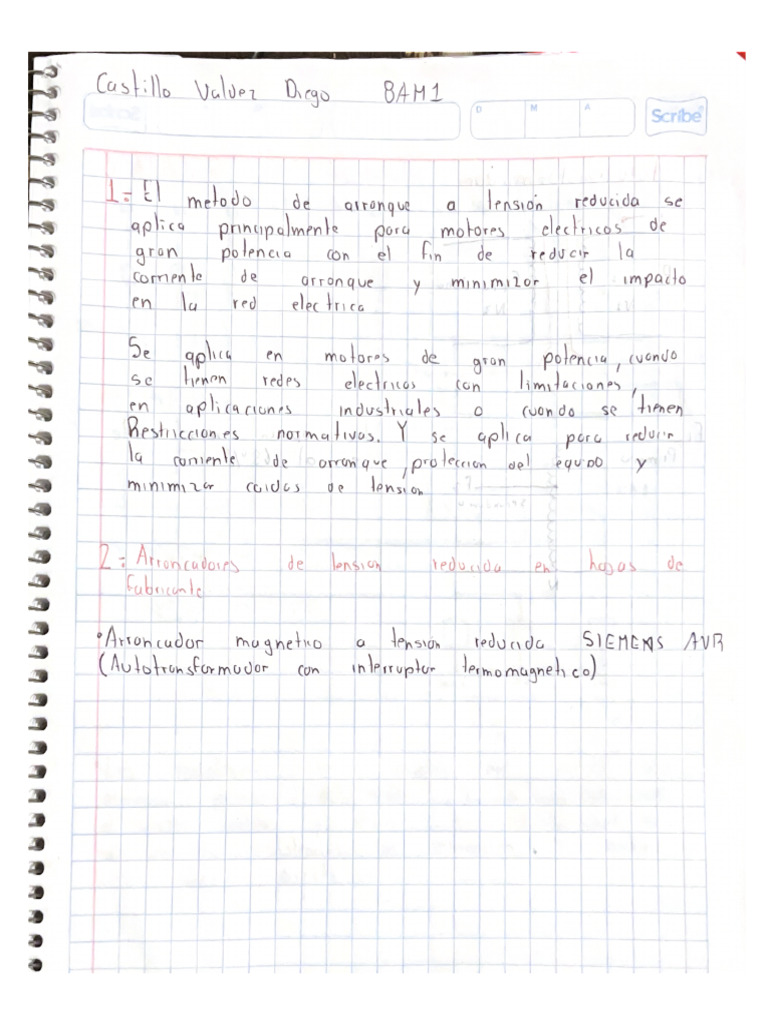 Castillo Valdez Diego 8AM1
D M A
Scribe
1= El metodo de arranque a tensión reducida se
aplica principalmente para motores electricos de
gran potencia con el fin de reducir la
corriente de arranque y minimizar el impacto
en la red electrica
Se aplica en motores de gran potencia, cuando
se tienen redes electricas con limitaciones,
en aplicaciones industriales o cuando se tienen
Restricciones normativas. Y se aplica para reducir
la corriente de arranque, proteccion del equipo y
minimizar caidas de tension
2= Arrancadores de tension reducida en hojas de
Fabricante
•Arrancador magnetico a tensión reducida SIEMENS AVR
(Autotransformador con interruptor termomagnetico)